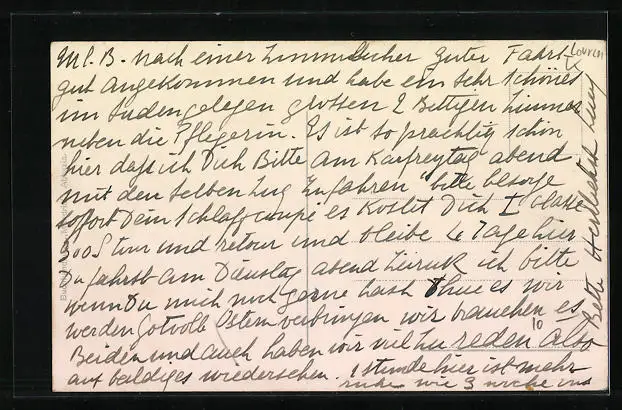 M l. B. nach einer ziemmlicher guter Fahrt
gut angekommen und habe ein sehr schönes
im Süden gelegen grossen 2 Bettigen Zimmer
neben die Pflegerin. Es ist so prachtig schön
hier dass ich Dich Bitte am Karfreytag abend
mit den selben Zug zufahren bitte besorge
sofort Dein Schlafcoupé es kostet Dich I classe
300 S tour und retour und bleibe 4 Tage hier
Du fahrst am Dienstag abend zurük ich bitte
wenn Du mich noch gerne hast thue es wir
werden Gotvolle Ostern verbringen wir brauchen es
Beiden und auch haben wir viel zu reden also
auf baldiges wiedersehen. 1 stunde hier ist mehr
ruhe wie 3 woche
10
Herzlichst